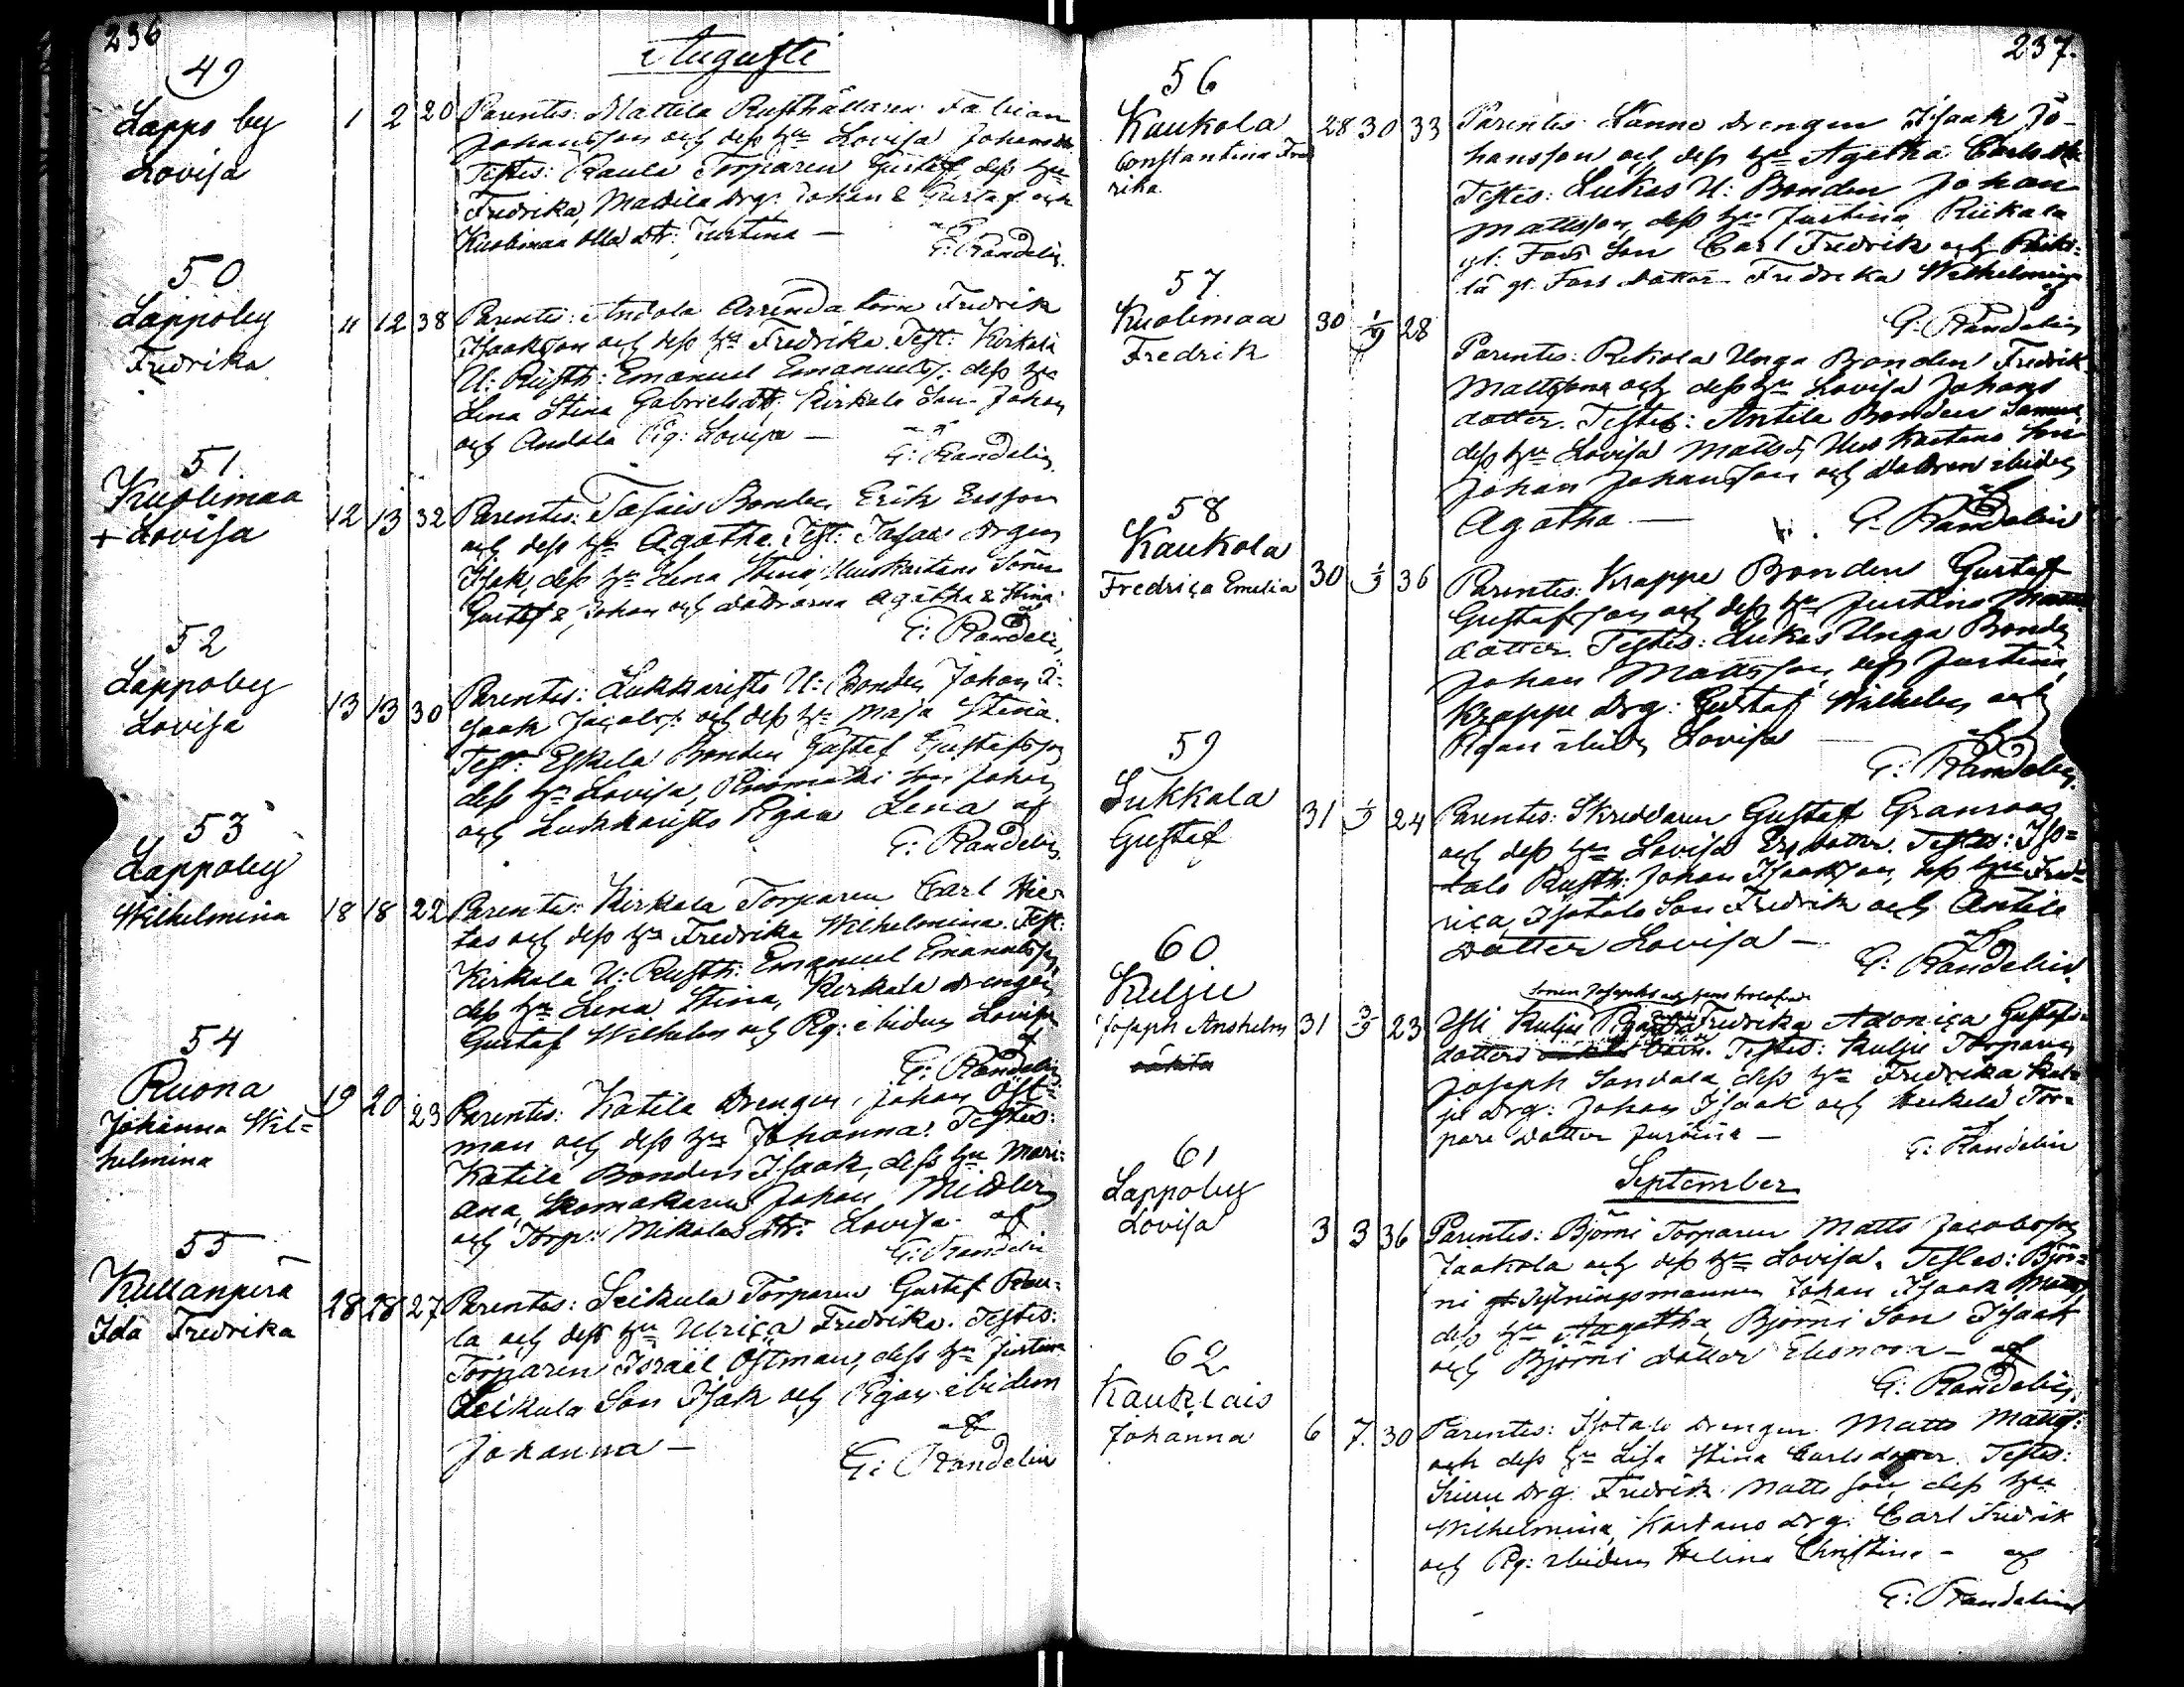 236
Augusti
49
Lappo by
Lovisa
1 2 20 Parentes: Mattila Rusthållaren Fabian
Johansson och dess hu Lovisa Johansdr
Testes: Raula Torparen Gustaf, dess hu
Fredrika, Mattila Drg: Johan & Gustaf och
Kuolimaa Dtr: Justina —
af G: Randelin.
50
Lappoby
Fredrika
11 12 38 Parentes: Andola Arrendatorn Fredrik
Isaaksson och dess hu Fredrika. Test: Kirkola
U: Rusth: Emanuel Emanuels: dess hu
Lena Stina Gabrielsdtr: Kirkola Son Johan
och Andola Pig: Lovisa —
af G: Randelin.
51
Kuolimaa
+ Lovisa
12 13 32 Parentes: Bonden Erik Ersson
och dess hu Agatha. Test: Drgen
Isak, dess hu Lena Stina Uuskartano Söner
Gustaf & Johan och döttrarna Agatha & Stina
af G: Randelin,
52
Lappoby
Lovisa
13 13 30 Parentes: Lukkaristo U: Bonden Johan I-
saak Jacobs: och dess hu Maja Stina.
Test: Eskela Bonden Gustaf Gustafsson
dess hu Lovisa, Son Johan
och Lukkaristo Pigan Lena af
G: Randelin
53
Lappoby
Wilhelmina
18 18 22 Parentes: Kirkola Torparen Carl Hie-
tas och dess hu Fredrika Wilhelmina. Test:
Kirkola U: Rusth: Emanuel Emanuelsson,
dess hu Lena Stina, Kirkola Drengen
Gustaf Wilhelm och Pig: ibidem Lovisa
af
G: Randelin
54
Ruona
Johanna Wil=
helmina
19 20 23 Parentes: Katila Drengen Johan Öst-
man och dess hu Johanna. Testes:
Katila Bonden Isaak, dess hu Mari-
ana, Skomakaren Johan
och Torp: Mikola dtr: Lovisa af
G: Randelin
55
Kullanperä
Ida Fredrika
28 28 27 Parentes: Seikula Torparen Gustaf Rau-
la och dess hu Ulrica Fredrika. Testes:
Torparen Israel Östman, dess hu Justina
Seikula Son Isak och Pigan ibidem
Johanna —
af
G: Randelin
237.
56
Kaukola
Constantina Fred
rika
28 30 33 Parentes: Länne Drengen Isaak Jo-
hansson och dess hu Agatha Carlsdtr
Testes: Lukas U: Bonden Johan
Mattsson, dess hu Justina Riikala
gl: Fars Son Carl Fredrik och
la gl. Fars Dotter Fredrika Wilhelmina
af
G: Randelin
57
Kuolimaa
Fredrik
30 1/9 28
Parentes: Rekola Unga Bonden Fredrik
Mattsson och dess hu Lovisa Johans
dotter. Testes: Antila Bonden Samuel
dess hu Lovisa Matsd: Uuskartano Son
Johan Johansson och dottren ibidem
Agatha — af
G: Randelin
58
Kaukola
Fredrica Emelia
30 1/9 36 Parentes: Krappe Bonden Gustaf
Gustafsson och dess hu Justina
dotter. Testes: Lukas Unga Bonden
Johan Mattsson, dess Justina,
Krappe Drg: Gustaf Wilhelm och
Pigan ibidem Lovisa — af
G: Randelin.
59
Sukkala
Gustaf
31 1/9 24 Parentes: Skreddaren Gustaf Granroos
och dess hu Lovisa Ersdotter. Testes: Iso=
talo Rusth: Johan Isaaksson, dess hu Fred=
rica, Isotalo Son Fredrik och Antila
Dotter Lovisa — af
G: Randelin
60
Kulju
Joseph Anshelm
31 3/9 23
Kulju Pigan Fredrika Adonica Gustafs-
dotters Testes: Kulju Torparen
Joseph Sandala dess hu Fredrika Kul=
ju Drg: Johan Isaak och Heikelä Tor=
pare Dotter Justina — af
G: Randelin
September
61
Lappoby
Lovisa
3 3 36 Parentes: Björni Torparen Matts Jacobsson
Jaakola och dess hu Lovisa. Testes: Björ-
ni Sytningsmannen Johan Isaak
dess hu Agatha, Björni Son Isaak
och Björni dotter Eleonora — af
G: Randelin.
62
Kauklais
Johanna
6 7. 30 Parentes: Isotalo Drengen Matts Matts:
och dess hu Lisa Stina Carlsdotter. Testes:
Drg: Fredrik Mattsson, dess hu
Wilhelmina, Kartano Drg: Carl Fredrik
och Pig: ibidem Helina Christina — af
G: Randelin